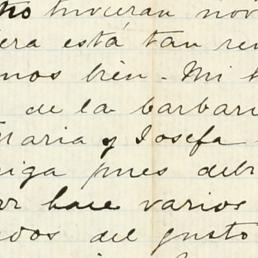 tuvieran nov
era está tan re
mos bien - Mi
de la barbari
Maria y Josefa
iga pues deb
hace varios
dos del gusto